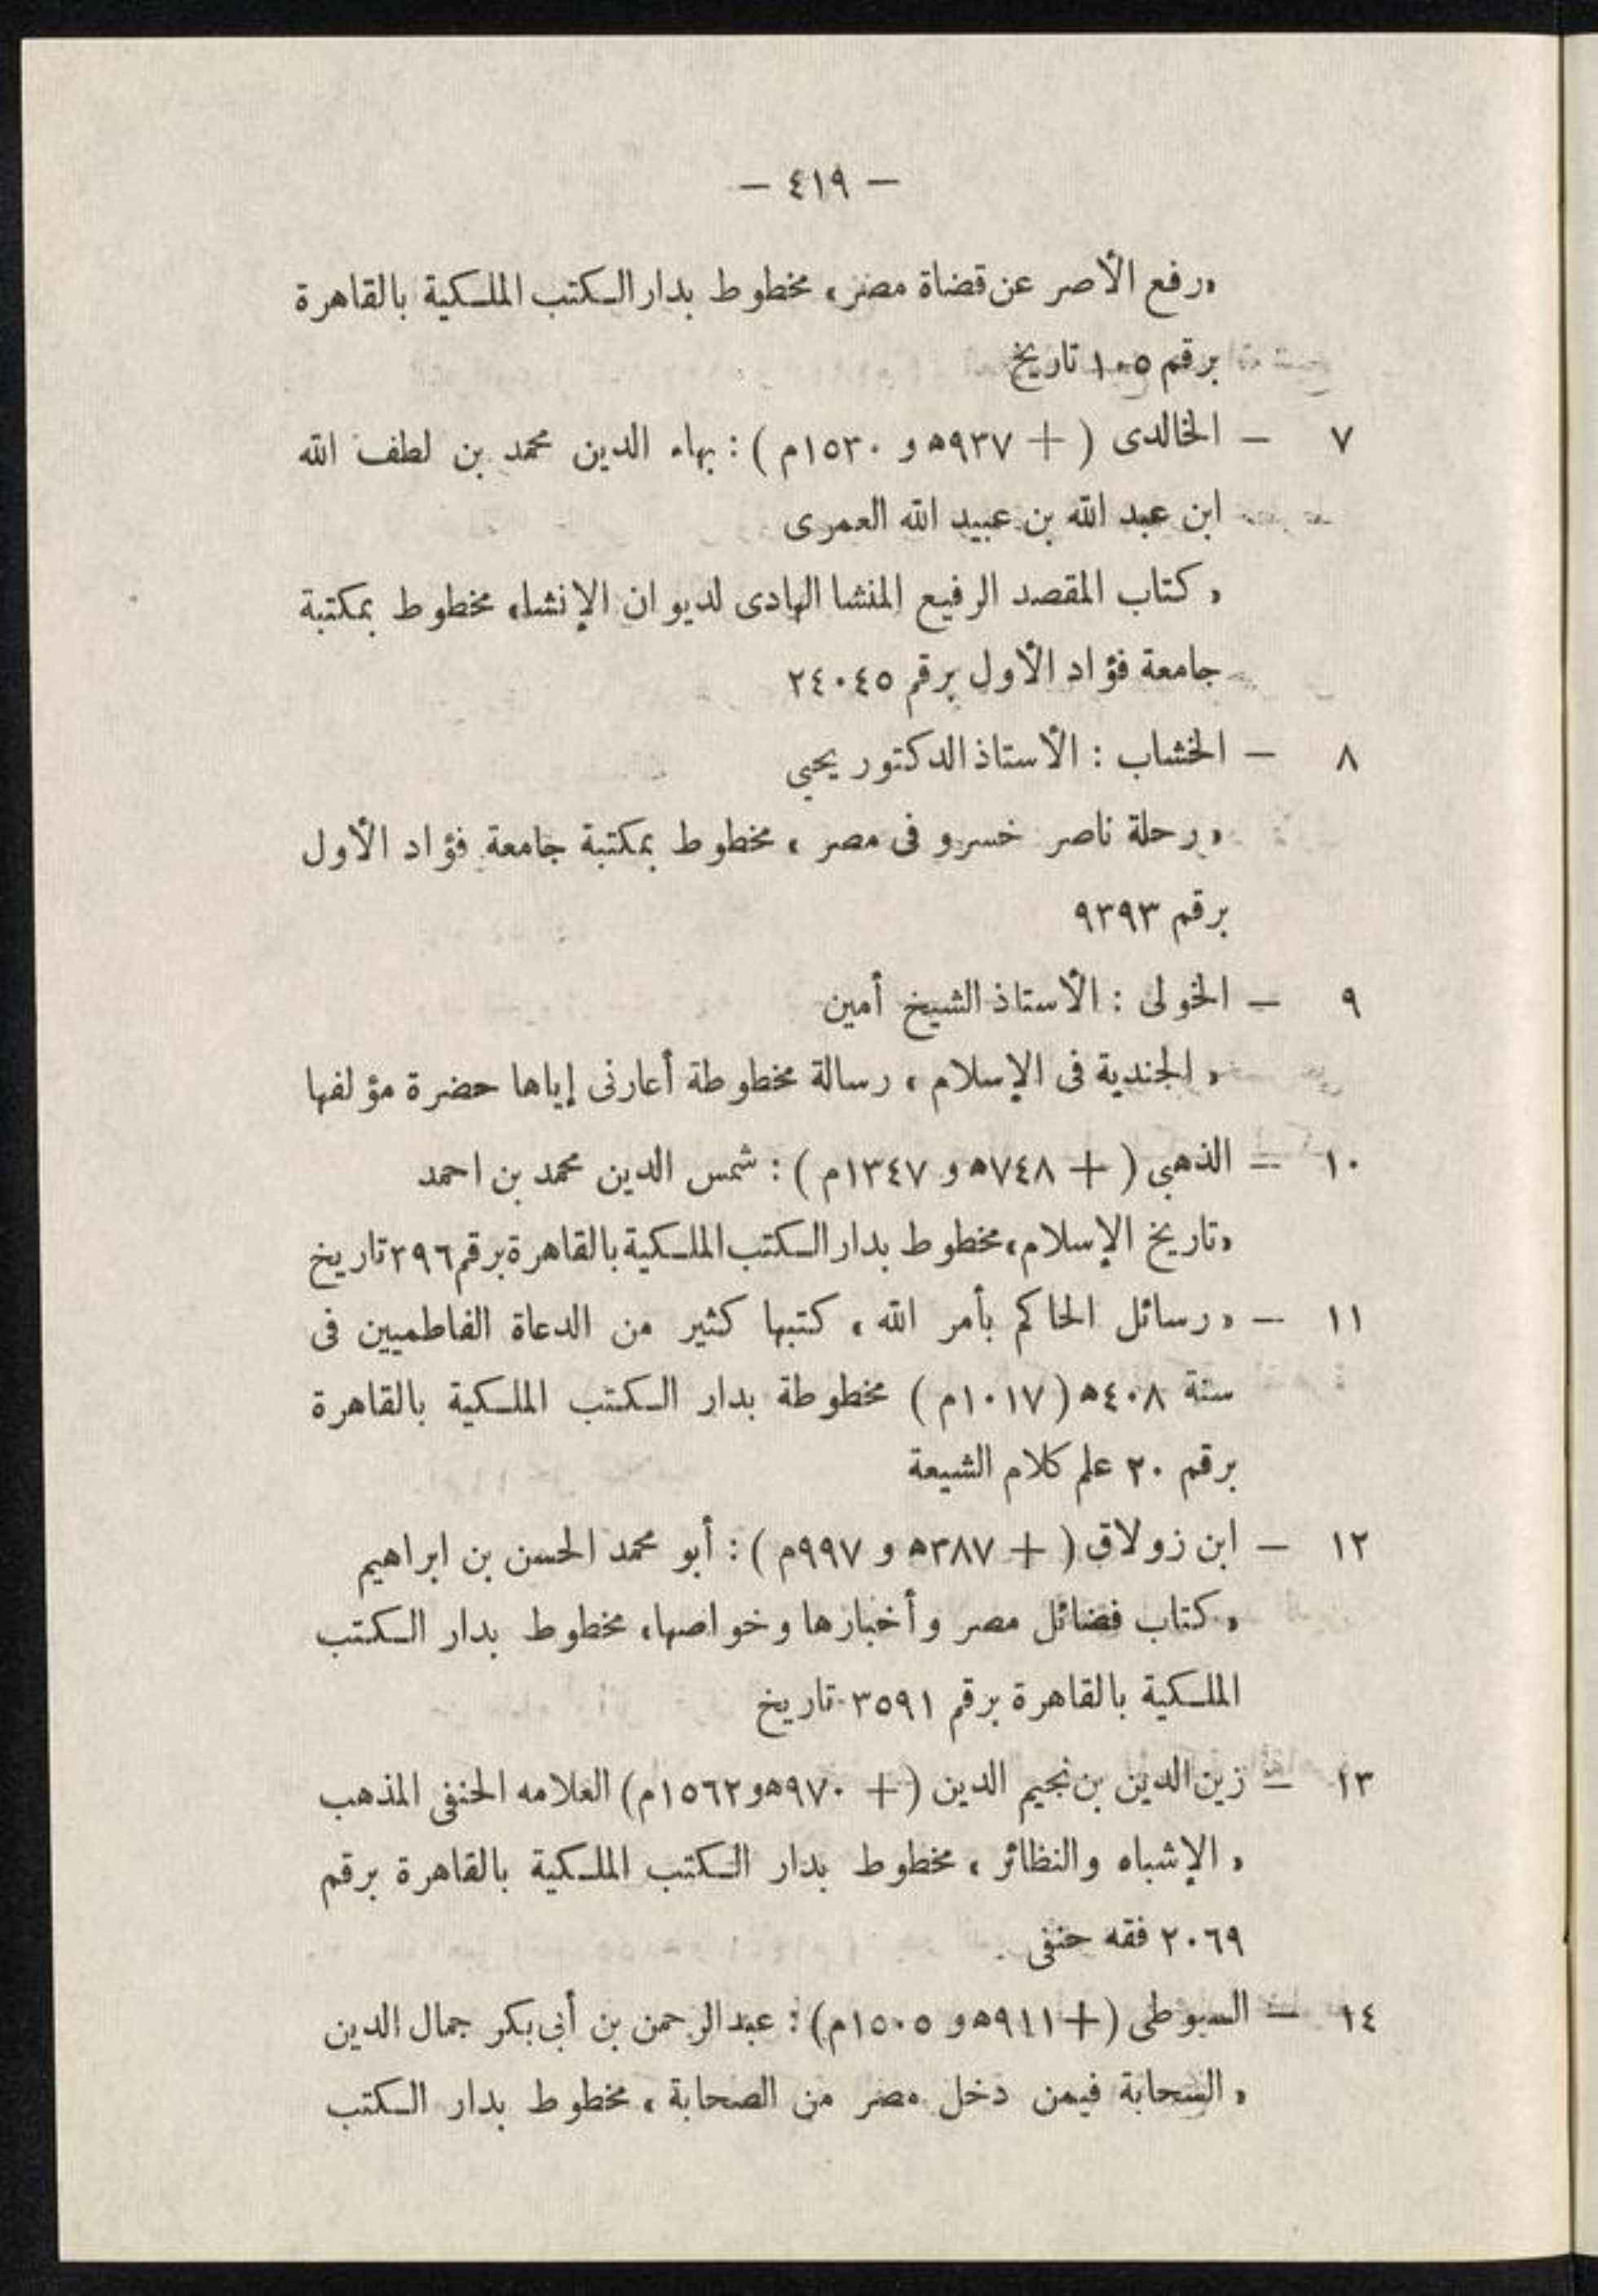 — ٤١٩ —
«رفع الأصر عن قضاة مصر» مخطوط بدار الكتب الملكية بالقاهرة
برقم ١٠٥ تاريخ
٧ — الخالدى ( + ٩٣٧ﻫ و ١٥٣٠م ) : بهاء الدين محمد بن لطف الله
ابن عبد الله بن عبيد الله العمرى
« كتاب المقصد الرفيع المنشا الهادى لديوان الإنشا» مخطوط بمكتبة
جامعة فؤاد الأول برقم ٢٤٠٤٥
٨ — الخشاب : الأستاذ الدكتور يحيى
« رحلة ناصر خسرو فى مصر » مخطوط بمكتبة جامعة فؤاد الأول
برقم ٩٣٩٣
٩ — الخولى : الأستاذ الشيخ أمين
« الجندية فى الإسلام » رسالة مخطوطة أعارنى إياها حضرة مؤلفها
١٠ — الذهبى ( + ٧٤٨ﻫ و ١٣٤٧م ) : شمس الدين محمد بن احمد
«تاريخ الإسلام» مخطوط بدار الكتب الملكية بالقاهرة برقم ٣٩٦ تاريخ
١١ — « رسائل الحاكم بأمر الله » كتبها كثير من الدعاة الفاطميين فى
سنة ٤٠٨ﻫ (١٠١٧م ) مخطوطة بدار الكتب الملكية بالقاهرة
برقم ٢٠ علم كلام الشيعة
١٢ — ابن زولاق ( + ٣٨٧ﻫ و ٩٩٧م ) : أبو محمد الحسن بن ابراهيم
« كتاب فضائل مصر وأخبارها وخواصها» مخطوط بدار الكتب
الملكية بالقاهرة برقم ٣٥٩١ تاريخ
١٣ — زين الدين بن نجيم الدين ( + ٩٧٠ﻫ و ١٥٦٢م) العلامه الحنفى المذهب
« الإشباه والنظائر » مخطوط بدار الكتب الملكية بالقاهرة برقم
٢٠٦٩ فقه حنفى
١٤ — السيوطى (+ ٩١١ﻫ و ١٥٠٥م) : عبد الرحمن بن أبى بكر جمال الدين
« السحابة فيمن دخل مصر من الصحابة » مخطوط بدار الكتب